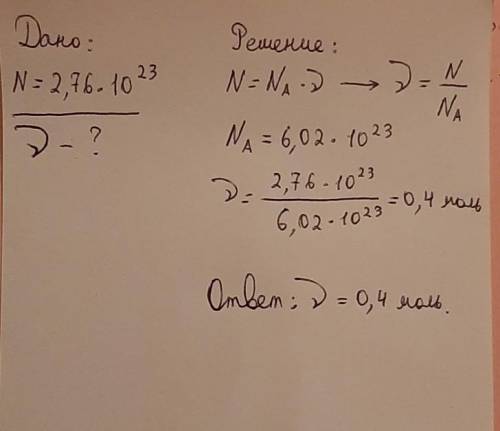 Дано:
N = 2,76 · 10²³
ν - ?
Решение:
N = N_A · ν → ν = N / N_A
N_A = 6,02 · 10²³
ν = 2,76 · 10²³ / 6,02 · 10²³ = 0,4 моль
Ответ: ν = 0,4 моль.